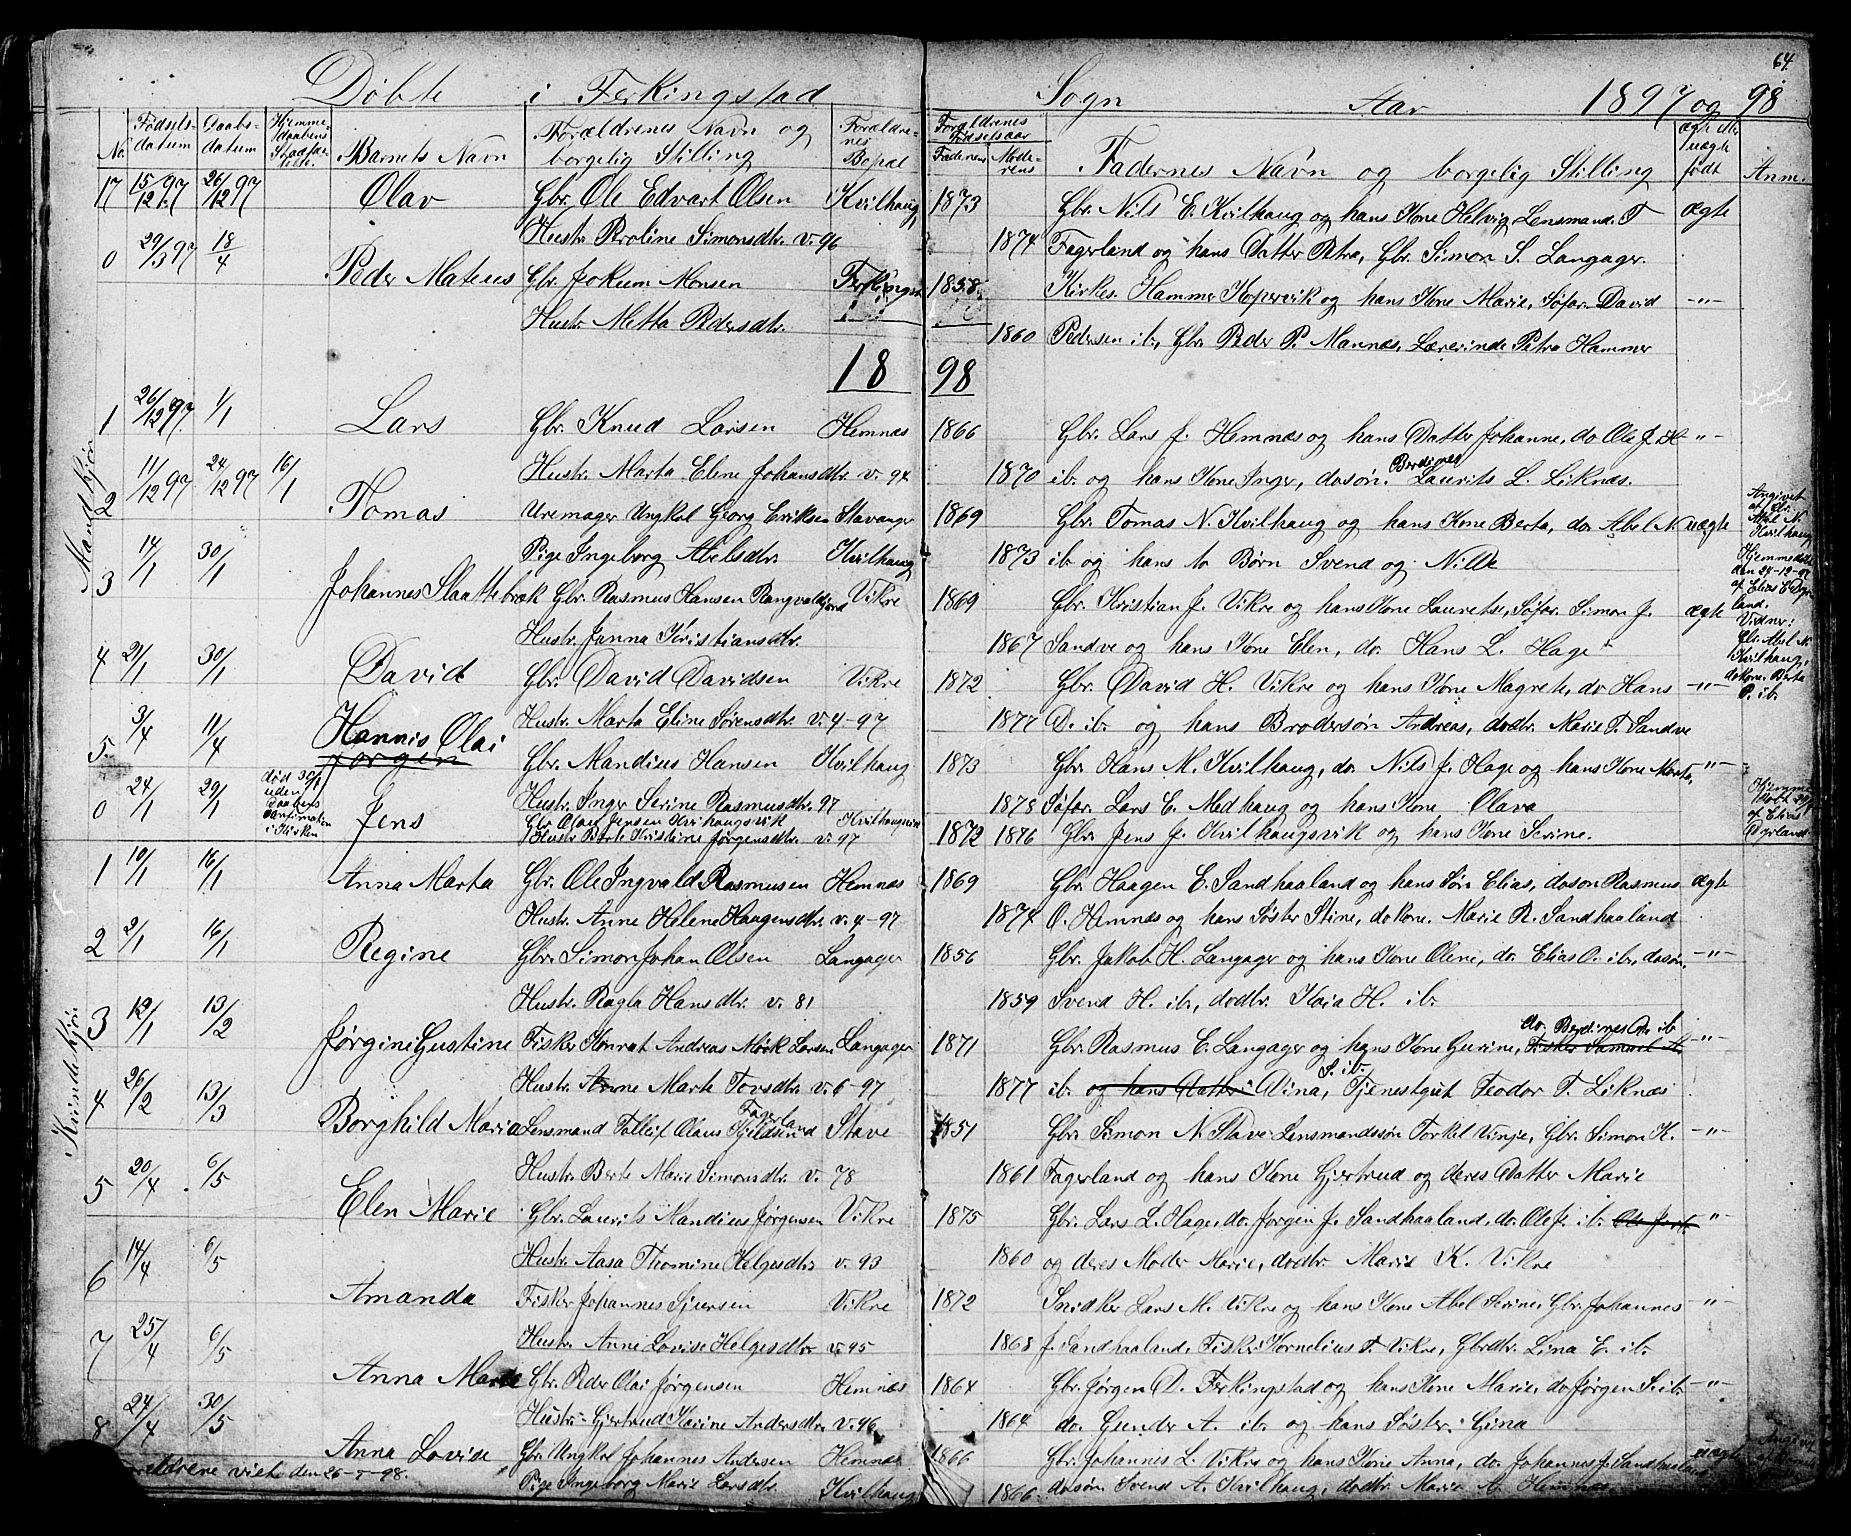 64.
Döbte i Ferkingstad Sogn Aar 1897 og 98
No. Födsels-datum Daabs-datum Hjemme-daabens Stadfæ-stelse Barnets Navn Forældrenes Navn og borgelig Stilling Forældre-nes Bopæl Forældrenes Födselsaar Faderens Mode-rens Fadernes Navn og borgelig Stilling ægte ell. uægte födt Anm.
17 15/12 97 26/12 97 Olav Gbr. Ole Edvart Olsen Kvilhaug 1873 Gbr. Nils E. Kvilhaug og hans Kone Helvig, Lensmand T. ægte
Hustr. Peroline Simonsdtr. v. 96 1874 Fagerland og hans Datter Petra, Gbr. Simon S. Langager.
0 29/3 97 18/4 Peder Mateus Gbr. Jokum Monsen Ferkingst. 1858 Kirkes. Hammer Kopervik og hans Kone Marie, Söfar. David -"-
Hustr. Metta Pedersdtr. 1860 Pedersen ib., Gbr. Peder P. Mannes, Lærerinde Petra Hammer
1898
Mandkjön
1 26/12 97 1/1 Lars Gbr. Knud Larsen Hemnæs 1866 Gbr. Lars J. Hemnæs og hans Datter Johanne, do Ole J. H -"-
Hustr. Marta Elene Johansdtr. v. 94 1870 ib. og hans Kone Inger, dosön. Berdines Laurits L. Liknæs.
2 11/12 97 24/12 97 16/1 Tomas Uremager Ungkal Georg Eriksen Stavanger 1869 Gbr. Tomas N. Kvilhaug og hans Kone Berta, do Abel N. uægte
Pige Ingeborg Abelsdtr. Kvilhaug 1873 ib. og hans to Börn Svend og Nille
Angivet af Gbr. Abel N. Kvilhaug Hjemmedöbt den 24-12-97 af Elias E. Dyrland. Vidner: Gbr. Abel N. Kvilhaug, do kone Berta P. ib.
3 14/1 30/1 Johannes Slaattebræk Gbr. Rasmus Hansen Rangvaldsjord Vikre 1869 Gbr. Kristian J. Vikre og hans Kone Lauretse, Söfar. Simon J. ægte
Hustr. Janna Kristiansdtr. 1867 Sandve og hans Kone Elen, do. Hans L. Hage
4 21/1 30/1 David Gbr. David Davidsen Vikre 1872 Gbr. David H. Vikre og hans Kone Magrete, do Hans -"-
Hustr. Marta Eline Sörensdtr. v. 4-97 1877 D. ib. og hans Brodersön Andreas, dodtr. Marie T. Sandve
5 3/4 11/4 Hannis Olai Jörgen Gbr. Mandius Hansen Kvilhaug 1873 Gbr. Hans M. Kvilhaug, do. Nils J. Hage og hans Kone Marta, -"-
Hustr. Inger Serine Rasmusdtr. 97 1878 Söfar. Lars E. Medhaug og hans Kone Olava
0 24/1 29/1 död 30/1 uden Daabens Confirmation i Kirken Jens Gbr. Olaus Jensen Kvilhaugsvik Kvilhaugsvik
Hustr. Berte Kristine Jörgensdtr. v. 97 1872 1876 Gbr. Jens J. Kvilhaugsvik og hans Kone Serine. Hjemme döbt 29/1 af Elias Dyrland
Kvindekjön
1 10/1 16/1 Anna Marta Gbr. Ole Ingvald Rasmusen Hemnæs 1869 Gbr. Haagen E. Sandhaaland og hans Sön Elias, doson Rasmus ægte
Hustr. Anne Helene Haagensdtr. v. 4-97 1874 O. Hemnæs og hans Söster Stine, do kone. Marie R. Sandhaaland
2 2/1 16/1 Regine Gbr. Simon Johan Olsen Langager 1856 Gbr. Jakob H. Langager og hans Kone Olene, do. Elias O. ib., dosön. -"-
Hustr. Ragla Hansdtr. v. 81 1859 Svend H. ib., dodtr. Kaia H. ib.
3 12/1 13/2 Jörgine Gustine Fisker Konrat Andreas Mörk Larsen Langager 1871 Gbr. Rasmus E. Langager og hans Kone Gurine, Fisker Samuel A. do. Berdines O. ib -"-
Hustr. Anne Marte Torsdtr. v. 6-97 1877 ib. og hans Datter Dina, S. ib. Tjenestgut Teodor T. Liknæs
4 26/2 13/3 Borghild Marie Lensmand Tolleif Olaus Kjeldsend Fagerland Stave 1851 Gbr. Simon N. Stave Lensmandssön Torkel Vinje, Gbr. Simon K. -"-
Hustr. Berte Marie Simonsdtr. v. 78 1861 Fagerland og hans Kone Gjertrud og deres Datter Marie
5 20/4 6/5 Elen Marie Gbr. Laurits Mandius Jörgensen Vikre 1875 Gbr. Lars L. Hage, do. Jörgen J. Sandhaaland, do. Ole J. ib. -"-
Hustr. Aasa Thomine Helgesdtr v. 93 1860 og deres Moder Marie, dodtr. Marie K. Vikre
6 14/4 6/5 Amanda Fisker Johannes Sjursen Vikre 1872 Snidker Lars M. Vikre og hans Kone Abel Serine, Gbr. Johannes -"-
Hustr. Anne Lovise Helgesdtr v. 95 1868 J. Sandhaaland, Fisker Kornelius T. Vikre, Gbrdtr. Lina E. ib.
7 25/4 6/5 Anna Marie Gbr. Peder Olai Jörgensen Hemnæs 1864 Gbr. Jörgen D. Ferkingstad og hans Kone Marie, do. Jörgen S. ib. -"-
Hustr. Gjertrud Karine Andersdtr. v. 96 1864 do. Gunder A. ib. og hans Söster Gina
8 24/4 30/5 Anna Lovise Gbr. Ungkal Johannes Andersen Hemnæs 1866 Gbr. Johannes L. Vikre og hans Kone Anna, do. Johannes J. Sandhaaland uægte
Forældrene viet den 26-5-98. Pige Ingeborg Marie Larsdtr. Kvilhaug 1866 dosön. Svend A. Kvilhaug, dodtr. Marie A. Hemnæs